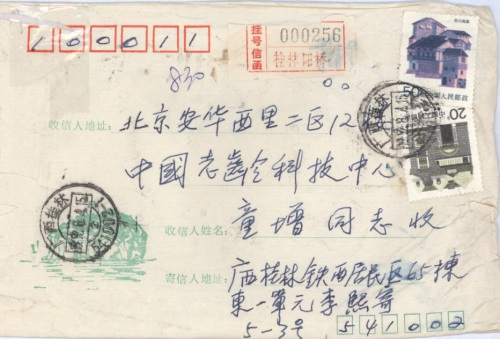 100011
挂号信函
000256
桂林阳桥
830
收信人地址:
北京安华西里二区12
中國老齡科技中心
收信人姓名:
童增同志收
寄信人地址:
广西桂林铁西居民区65棟
東一單元李熙寄
5-3号
541002
50
中国人民邮政
20
广西桂林
广西桂林